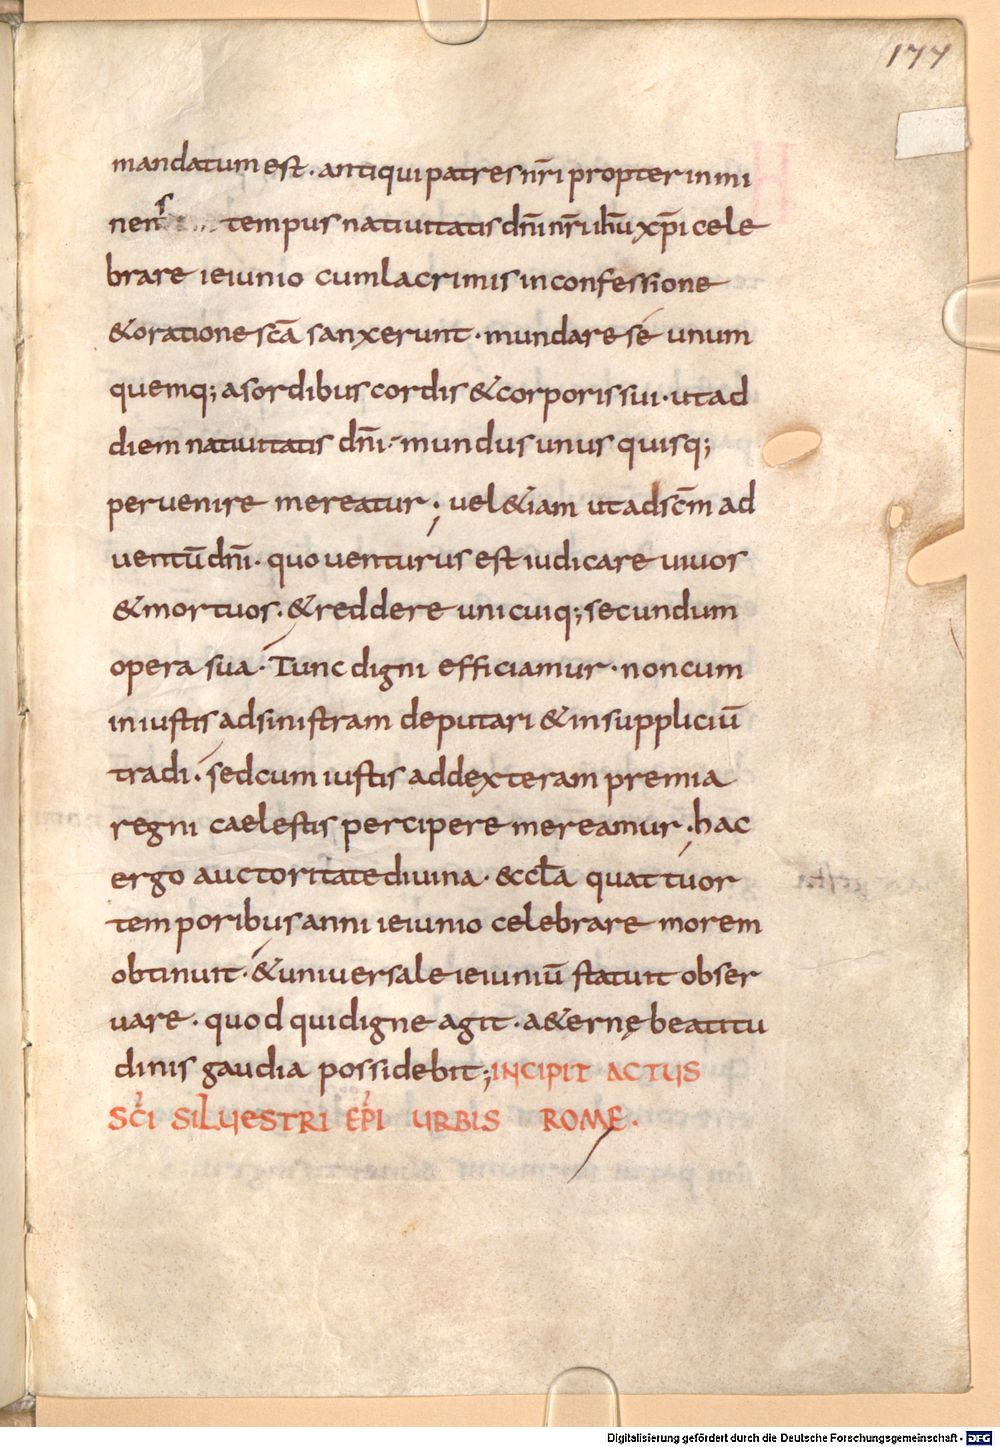 177
mandatum est. antiqui patres nr̅i propter inmi
nens tempus natiuitatis dn̅i nr̅i ih̅u xp̅i cele
brare ieiunio cum lacrimis in confessione
& oratione sc̅a sanxerunt. mundare se unum
quemq; a sordibus cordis & corporis sui. ut ad
diem natiuitatis dn̅i. mundus unus quisq;
peruenire mereatur; uel &iam ut ad sc̅m ad
uentu̅ dn̅i. quo uenturus est iudicare uiuos
& mortuos. & reddere uni cuiq; secundum
opera sua. Tunc digni efficiamur. non cum
iniustis ad sinistram deputari & in suppliciu̅
tradi. sed cum iustis ad dexteram premia
regni caelestis percipere mereamur. hac
ergo auctoritate diuina. & eccl̅a quattuor
temporibus anni ieiunio celebrare morem
obtinuit. & uniuersale ieiuniu̅ statuit obser
uare. quod qui digne agit. a&ernę beatitu
dinis gaudia possidebit; INCIPIT ACTUS
SC̅I SILUESTRI EP̅I URBIS ROME.
Digitalisierung gefördert durch die Deutsche Forschungsgemeinschaft - DFG